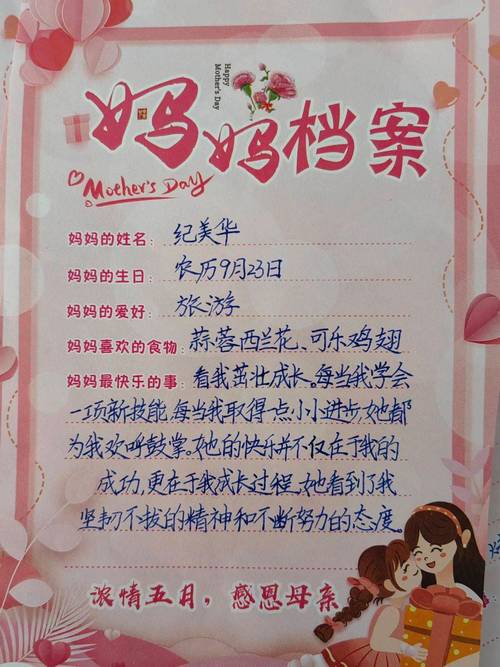 Happy
Mother's Day
妈妈档案
Mother's Day
妈妈的姓名: 纪美华
妈妈的生日: 农历9月23日
妈妈的爱好: 旅游
妈妈喜欢的食物: 蒜蓉西兰花、可乐鸡翅
妈妈最快乐的事: 看我茁壮成长。每当我学会
一项新技能,每当我取得一点小小进步,她都
为我欢呼鼓掌。她的快乐并不仅在于我的
成功,更在于我成长过程,她看到了我
坚韧不拔的精神和不断努力的态度。
浓情五月，感恩母亲